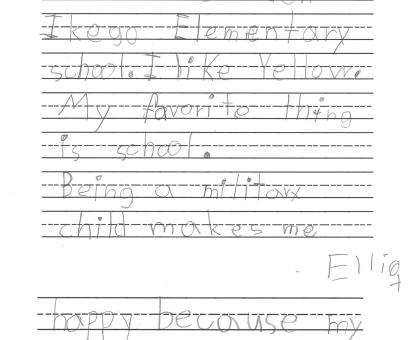 Ikego Elementary
school. I like Yellow.
My favorito thing
is school.
Being a militarx
child makes me
happy because my